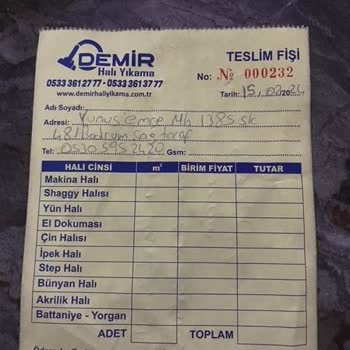 DEMİR
Halı Yıkama
0533 361 27 77 - 0533 361 37 77
www.demirhaliyikama.com.tr
TESLİM FİŞİ
No: № 000232
Tarih: 15.02.2024
Adı Soyadı:
Adresi: Yunus emre Mh 1385 sk
48/1 Bodrum sağ taraf
Tel: 0530 595 2420 Gsm:
HALI CİNSİ m² BİRİM FİYAT TUTAR
Makina Halı
Shaggy Halısı
Yün Halı
El Dokuması
Çin Halısı
İpek Halı
Step Halı
Bünyan Halı
Akrilik Halı
Battaniye - Yorgan
ADET TOPLAM